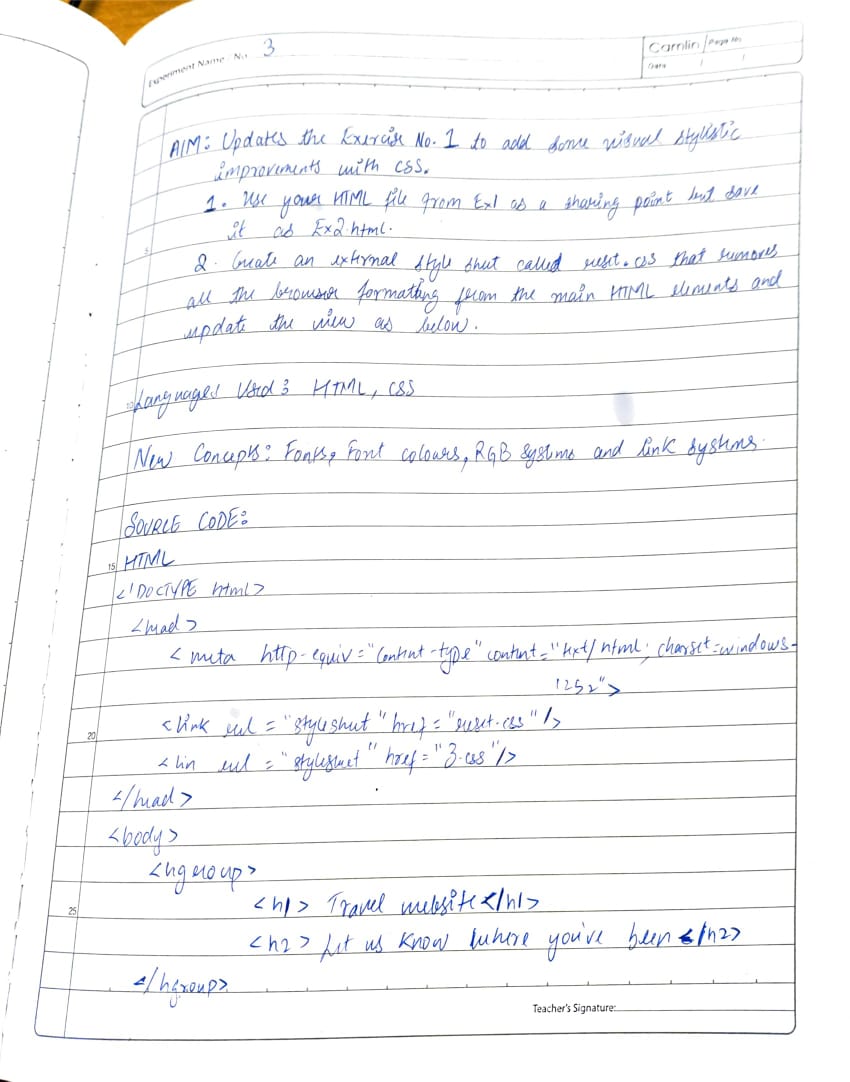 Experiment Name / No. 3
Camlin Page No.
Date / /
AIM: Updates the Exercise No. 1 to add some visual stylistic
improvements with CSS.
1. Use your HTML file from Ex1 as a sharing point but save
it as Ex2.html.
2. Create an external style sheet called reset.css that removes
all the browser formatting from the main HTML elements and
update the view as below.
Languages Used: HTML, CSS
New Concepts: Fonts, Font colours, RGB systems and link systems.
SOURCE CODE:
15 HTML
<!DOCTYPE html>
<head>
< meta http-equiv = "content-type" content = "text/html; charset=windows-
1252">
20 <link rel = "stylesheet" href = "reset.css" />
< lin rel = "stylesheet" href = "3.css"/>
</head>
<body>
<hgroup>
25 <h1> Travel website </h1>
<h2> Let us know where you've been </h2>
</hgroup>
Teacher's Signature: